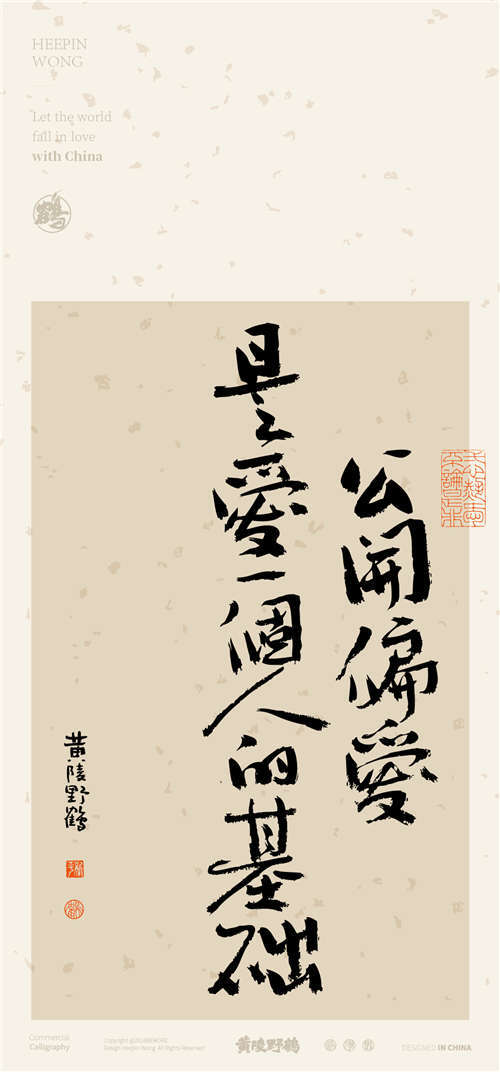 HEEPIN
WONG
Let the world
fall in love
with China
公開偏愛
是愛一個人的基础
黄陵野鶴
Commercial
Calligraphy
黄陵野鶴
DESIGNED IN CHINA